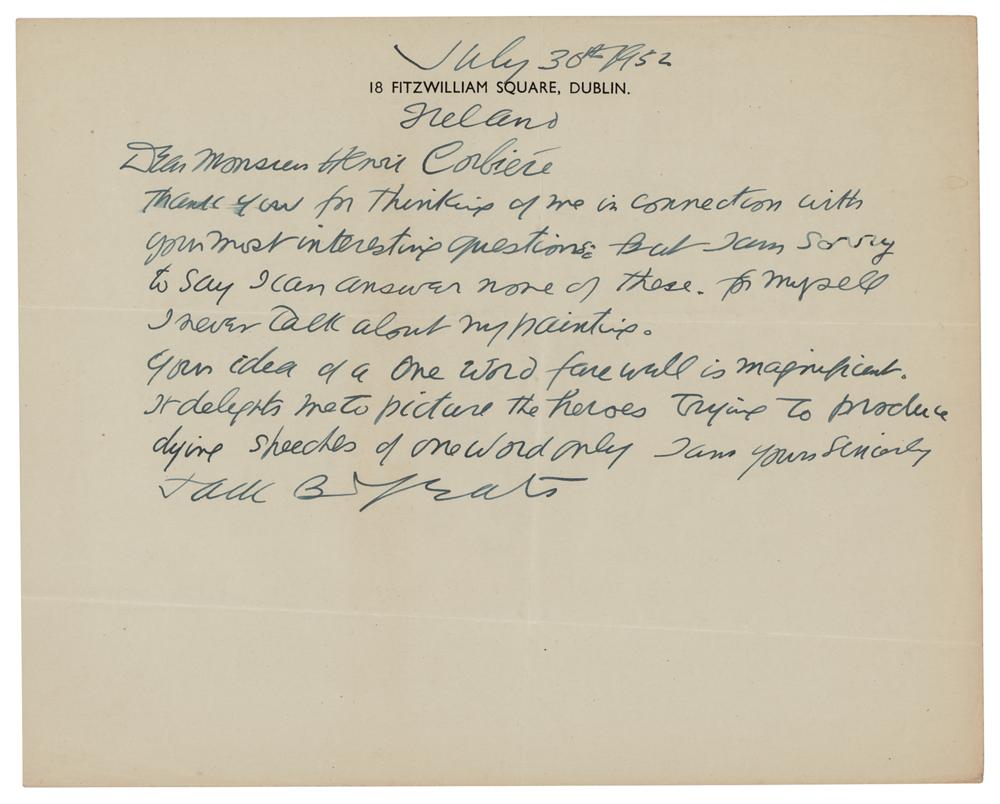 July 30th 1952
18 FITZWILLIAM SQUARE, DUBLIN.
Ireland
Dear Monsieur Henri Corbière
Thank you for thinking of me in connection with
your most interesting questions: but I am sorry
to say I can answer none of these. for myself
I never talk about my painting.
Your idea of a one word farewell is magnificent.
It delights me to picture the heroes trying to produce
dying speeches of one word only I am yours sincerely
Jack B Yeats